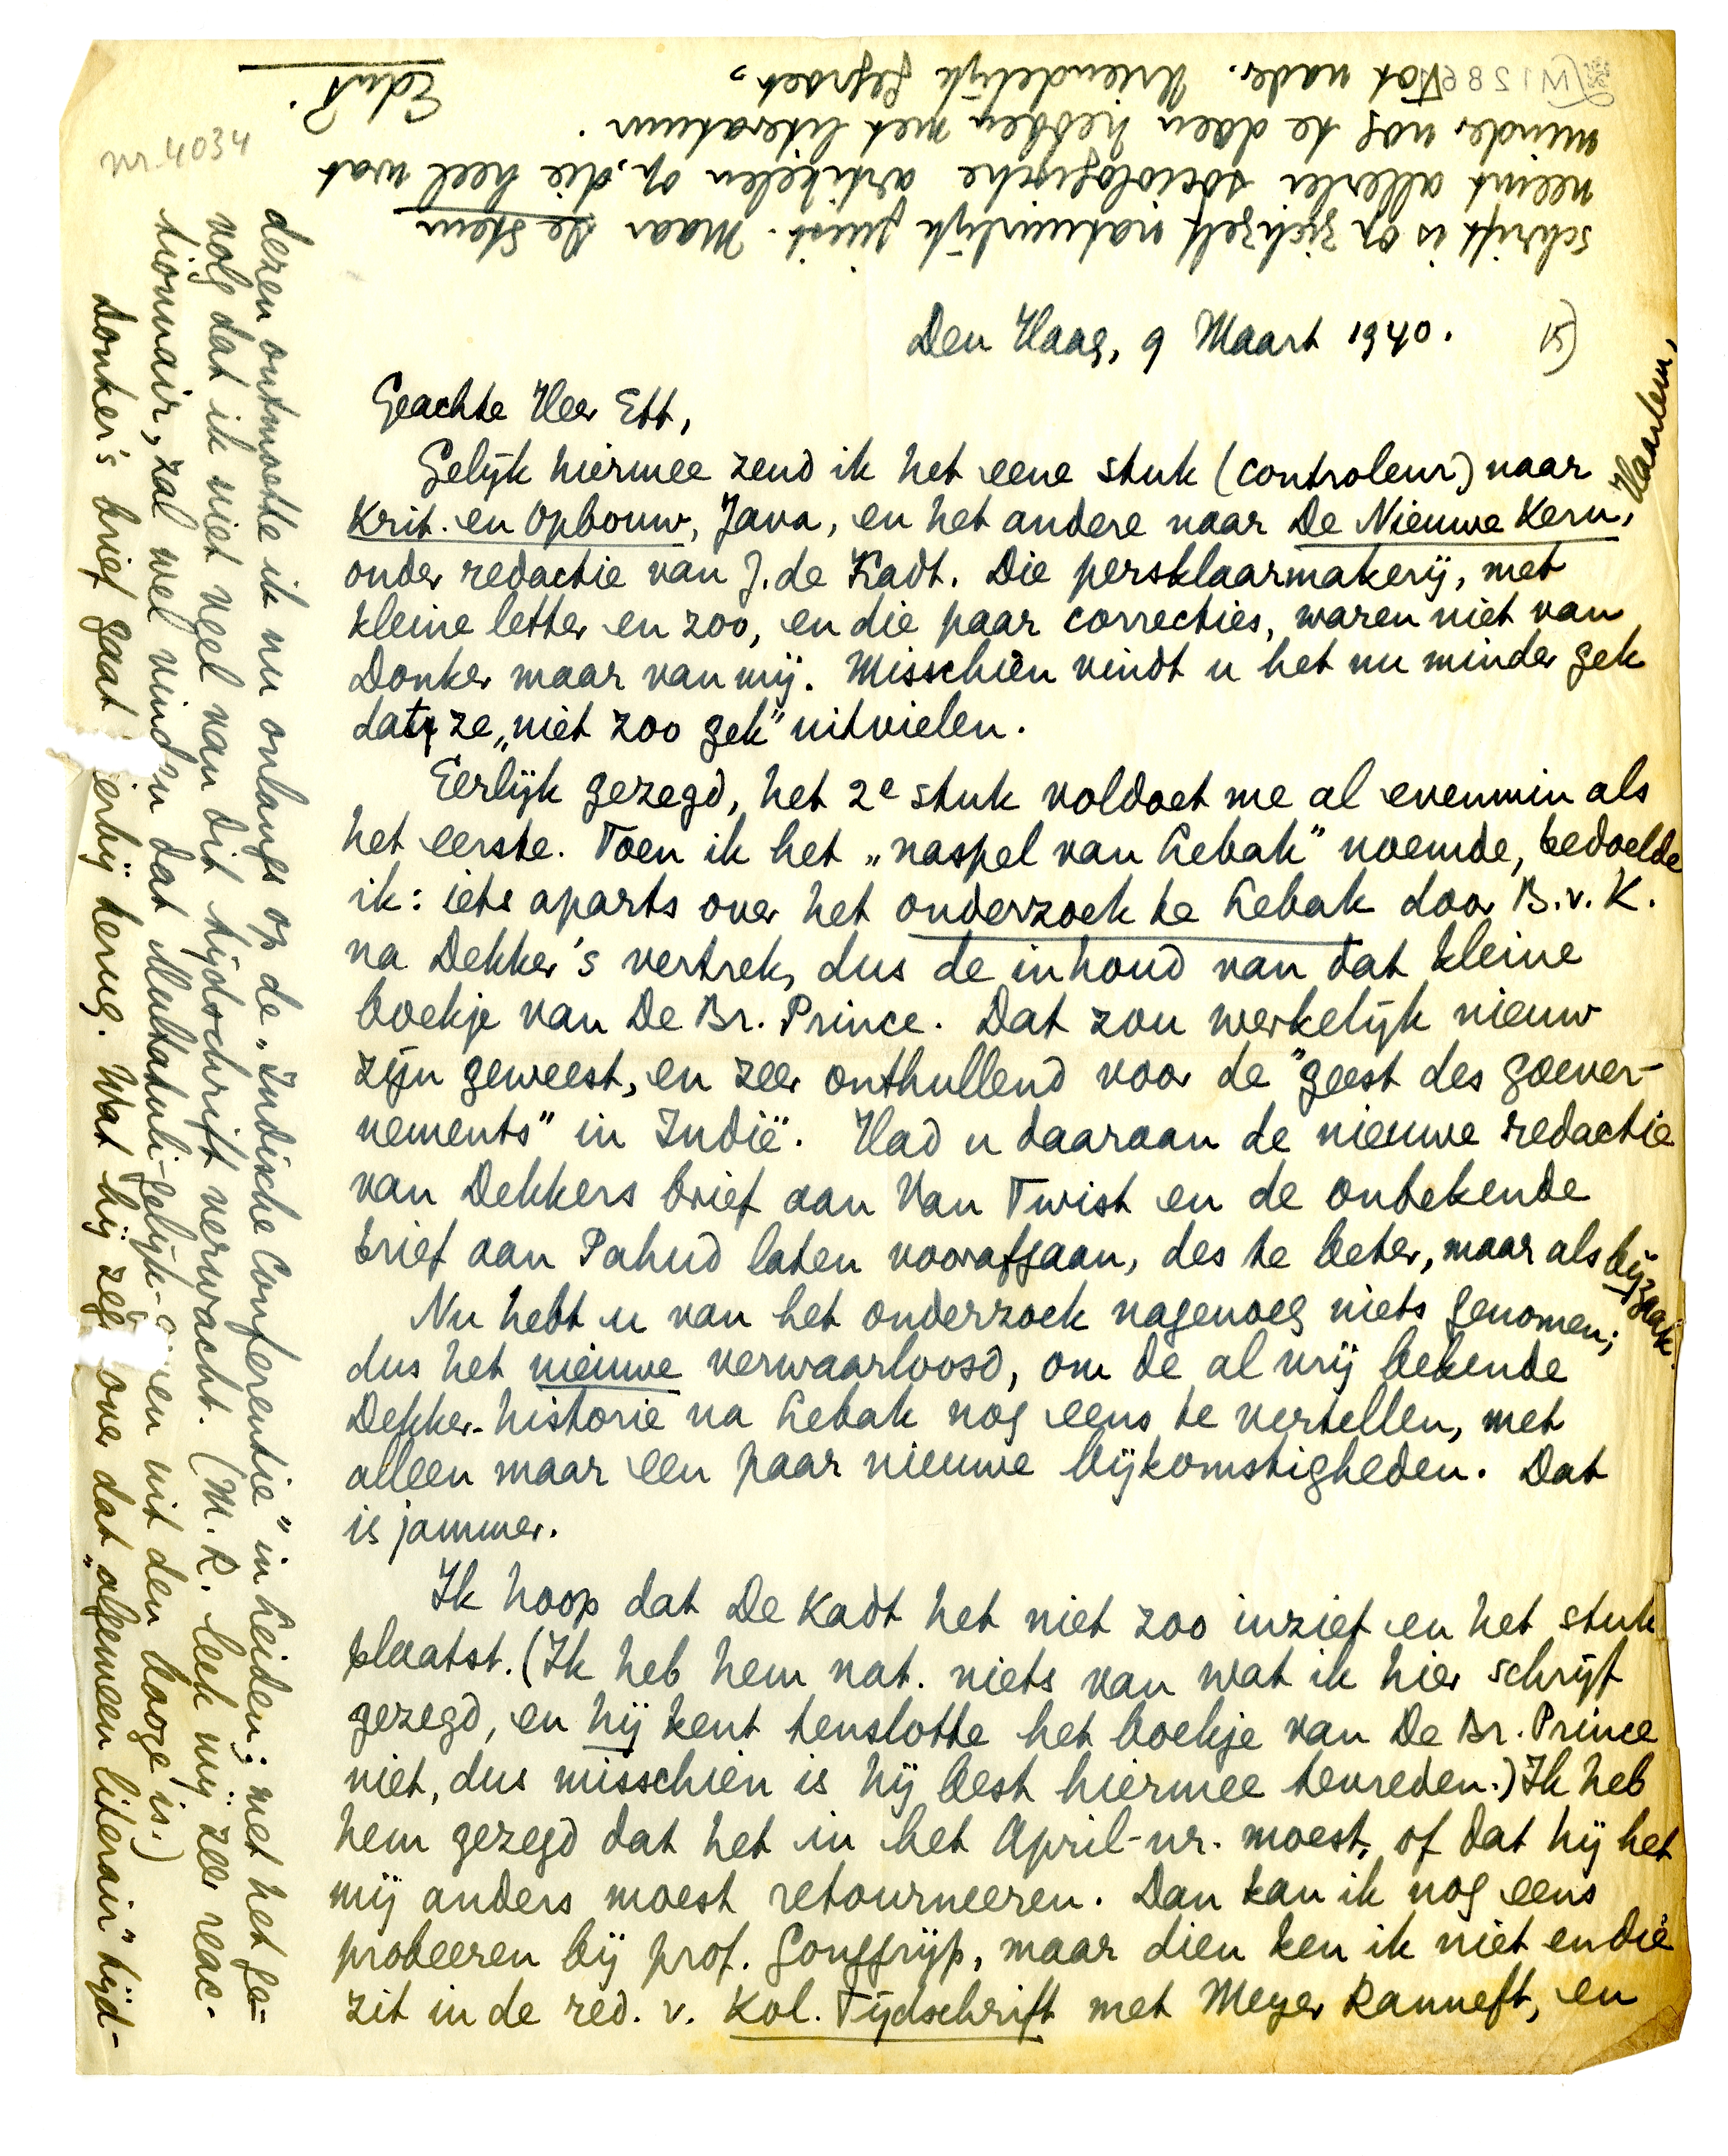 Den Haag, 9 Maart 1940.
15)
Geachte Heer Ett,
Gelijk hiermee zend ik het eene stuk (controleur) naar
Krit. en Opbouw, Java, en het andere naar De Nieuwe Kern, Haarlem,
onder redactie van J. de Kadt. Die persklaarmakerij, met
kleine letter en zoo, en die paar correcties, waren niet van
Donker maar van mij. Misschien vindt u het nu minder gek
dat ze „niet zoo gek" uitvielen.
Eerlijk gezegd, het 2e stuk voldoet me al evenmin als
het eerste. Toen ik het „naspel van Lebak" noemde, bedoelde
ik: iets aparts over het onderzoek te Lebak door B.v.K.
na Dekker's vertrek, dus de inhoud van dat kleine
boekje van De Br. Prince. Dat zou werkelijk nieuw
zijn geweest, en zeer onthullend voor de "geest des goever-
nements" in Indië. Had u daaraan de nieuwe redactie
van Dekkers brief aan Van Twist en de onbekende
brief aan Pahud laten voorafgaan, des te beter, maar als bijzaak.
Nu hebt u van het onderzoek nagenoeg niets genomen;
dus het nieuwe verwaarloosd, om de al vrij bekende
Dekker-historie na Lebak nog eens te vertellen, met
alleen maar een paar nieuwe bijkomstigheden. Dat
is jammer.
Ik hoop dat De Kadt het niet zoo inziet en het stuk
plaatst. (Ik heb hem nat. niets van wat ik hier schrijf
gezegd, en hij kent tenslotte het boekje van De Br. Prince
niet, dus misschien is hij best hiermee tevreden.) Ik heb
hem gezegd dat het in het April-nr. moest, of dat hij het
mij anders moest retourneeren. Dan kan ik nog eens
probeeren bij prof. Gonggrijp, maar dien ken ik niet en die
zit in de red. v. Kol. Tijdschrift met Meyer Ranneft, en
dezen ontmoette ik nu onlangs op de „Indische Conferentie" in Leiden; met het ge-
volg dat ik niet veel van dit tijdschrift verwacht. (M.R. leek mij zeer reac-
tionnair, zal wel vinden dat Multatuli-gelijk- en uit den booze is.)
Donker's brief gaat ierbij terug. Wat hij zeg over dat „algemeen literair" tijd-
schrift is op zichzelf natuurlijk juist. Maar De Stem
neemt allerlei sociologische artikelen op, die heel wat
minder nog te doen hebben met literatuur.
Tot nader. Vriendelijk gegroet,
EduP.
nr. 4034
M1286